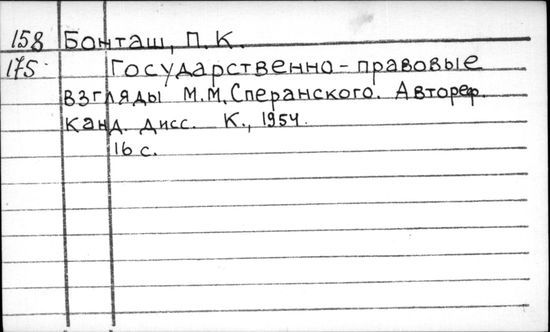 158 Бонташ, П. К.
175 Государственно-правовые
взгляды М.М. Сперанского. Автореф.
канд. дисс. К., 1954.
16 с.